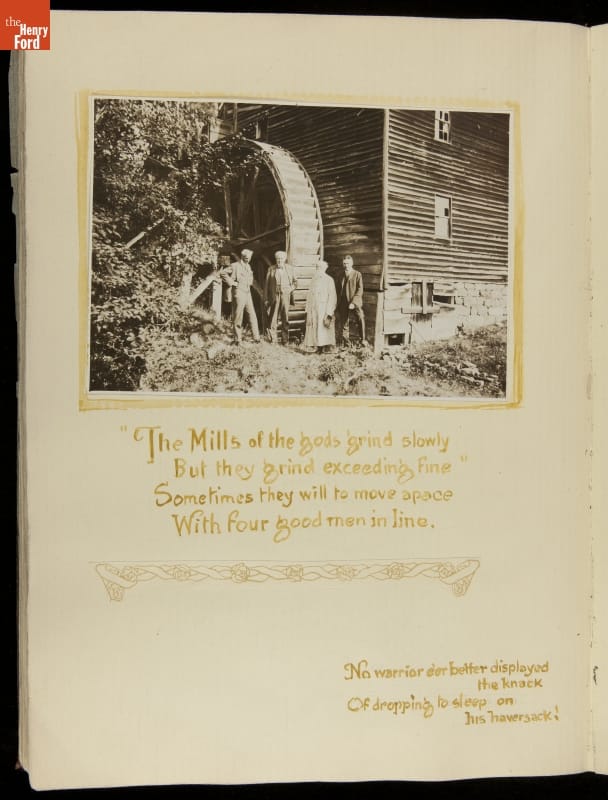 the
Henry
Ford
"The Mills of the gods grind slowly
But they grind exceeding fine"
Sometimes they will to move apace
With four good men in line.
No warrior e'er better displayed
the knack
Of dropping to sleep on
his haversack!